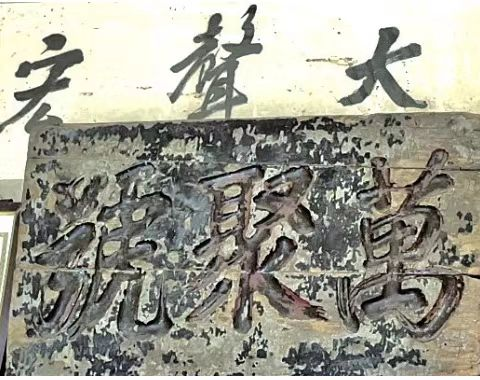 大聲宏
萬聚號